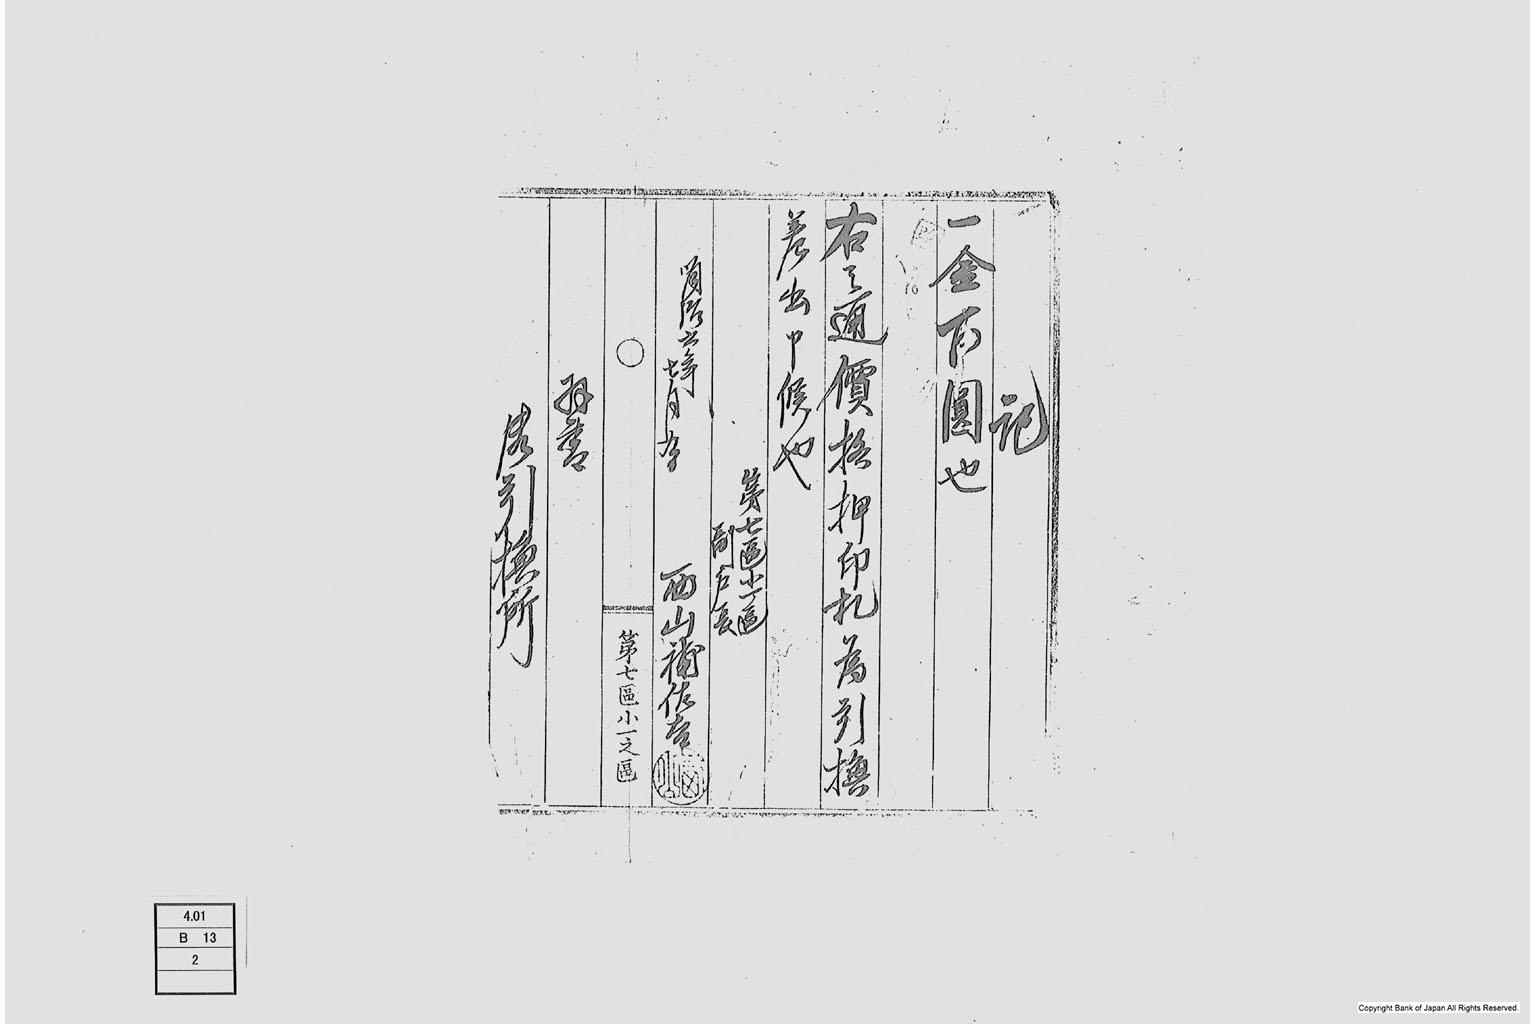 記
一金百圓也
右之通價格押印札為引換
差出申候也
第七區小一區
副戸長
明治六年
七月
西山補佐吉
第七區小一之區
引換所
4.01
B 13
2
Copyright Bank of Japan All Rights Reserved.